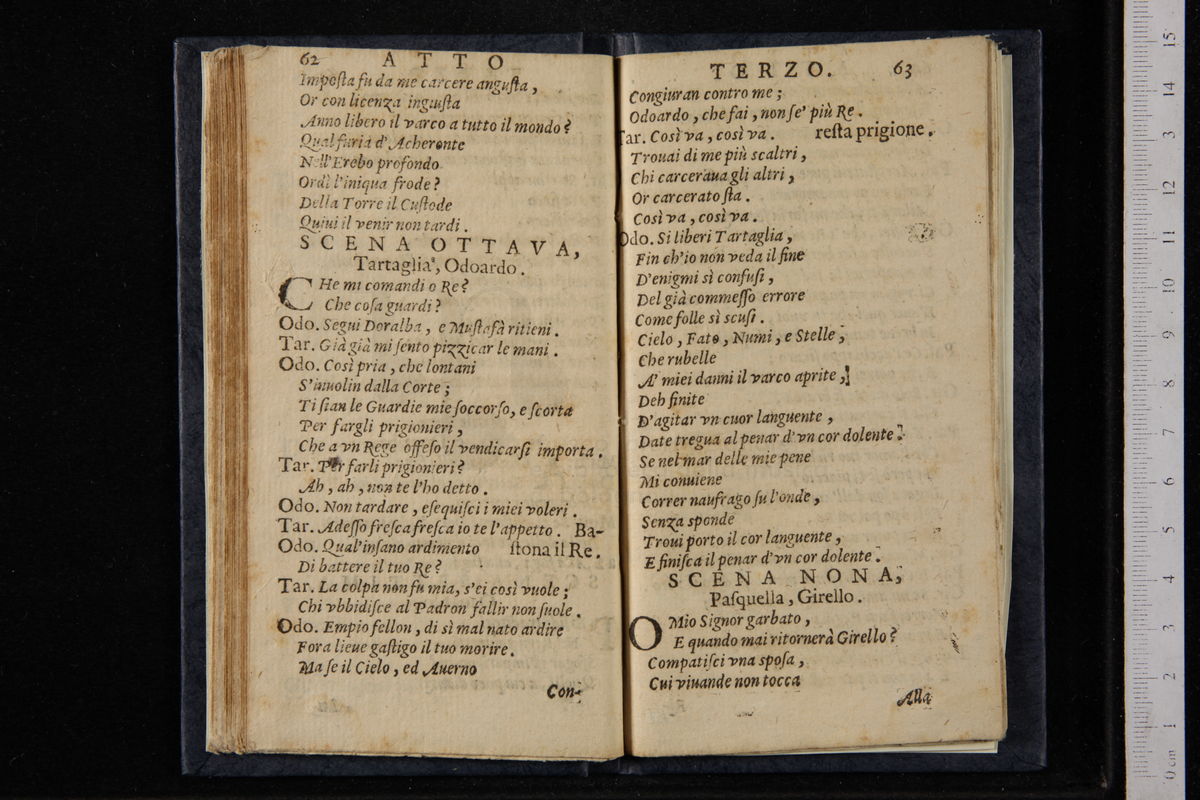 62 ATTO
Impoſta fu da me carcere anguſta,
Or con licenza ingiuſta
Anno libero il varco a tutto il mondo?
Qual furia d'Acheronte
Nell'Erebo profondo
Ordì l'iniqua frode?
Della Torre il Cuſtode
Quiui il venir non tardi.
SCENA OTTAVA,
Tartaglia, Odoardo.
CHe mi comandi o Re?
Che coſa guardi?
Odo. Segui Doralba, e Muſtafà ritieni.
Tar. Già già mi ſento pizzicar le mani.
Odo. Così pria, che lontani
S'inuolin dalla Corte;
Ti ſian le Guardie mie ſoccorſo, e ſcorta
Per fargli prigionieri,
Che a vn Rege offeſo il vendicarſi importa.
Tar. Per farli prigionieri?
Ah, ah, non te l'ho detto.
Odo. Non tardare, eſequiſci i miei voleri.
Tar. Adeſſo freſca freſca io te l'appetto. Ba-
Odo. Qual'inſano ardimento ſtona il Re.
Di battere il tuo Re?
Tar. La colpa non fu mia, s'ei così vuole;
Chi vbbidiſce al Padron fallir non ſuole.
Odo. Empio fellon, di sì mal nato ardire
Fora lieue gaſtigo il tuo morire.
Ma ſe il Cielo, ed Auerno
Con-
TERZO. 63
Congiuran contro me;
Odoardo, che fai, non ſe' più Re.
Tar. Così va, così va. reſta prigione.
Trouai di me più scaltri,
Chi carceraua gli altri,
Or carcerato ſta.
Così va, così va.
Odo. Si liberi Tartaglia,
Fin ch'io non veda il fine
D'enigmi sì confuſi,
Del già commeſſo errore
Come folle sì scuſi.
Cielo, Fato, Numi, e Stelle,
Che rubelle
A' miei danni il varco aprite,
Deh finite
D'agitar vn cuor languente,
Date tregua al penar d'vn cor dolente.
Se nel mar delle mie pene
Mi conuiene
Correr naufrago ſu l'onde,
Senza sponde
Troui porto il cor languente,
E finiſca il penar d'vn cor dolente.
SCENA NONA,
Paſquella, Girello.
O Mio Signor garbato,
E quando mai ritornerà Girello?
Compatiſci vna spoſa,
Cui viuande non tocca
Alla